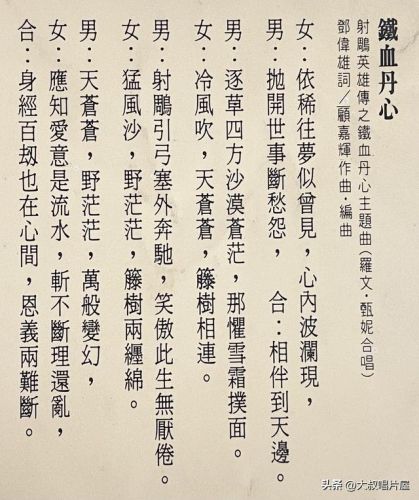 鐵血丹心
射鵰英雄傳之鐵血丹心主題曲(羅文·甄妮合唱)
鄧偉雄詞/顧嘉輝作曲·編曲
女：依稀往夢似曾見，心內波瀾現，
男：拋開世事斷愁怨，　合：相伴到天邊。
男：逐草四方沙漠蒼茫，那懼雪霜撲面。
女：冷風吹，天蒼蒼，籐樹相連。
男：射鵰引弓塞外奔馳，笑傲此生無厭倦。
女：猛風沙，野茫茫，籐樹兩纏綿。
男：天蒼蒼，野茫茫，萬般變幻，
女：應知愛意是流水，斬不斷理還亂，
合：身經百刼也在心間，恩義兩難斷。
头条 @大叔唱片屋